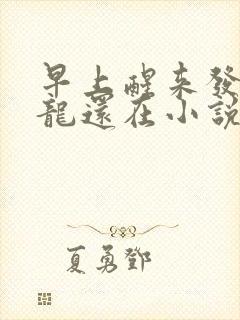 早上醒来發
龍還在小說
夏勇鄧